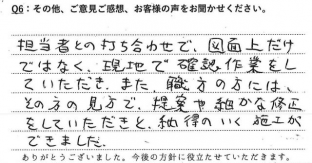 Q6：その他、ご意見ご感想、お客様の声をお聞かせください。
担当者との打ち合わせで、図面上だけ
ではなく、現地で確認作業をし
ていただき、また、職方の方には、
その方の見方で、提案や細かな修正
をしていただきと、納得のいく施工が
できました。
ありがとうございました。今後の方針に役立たせていただきます。